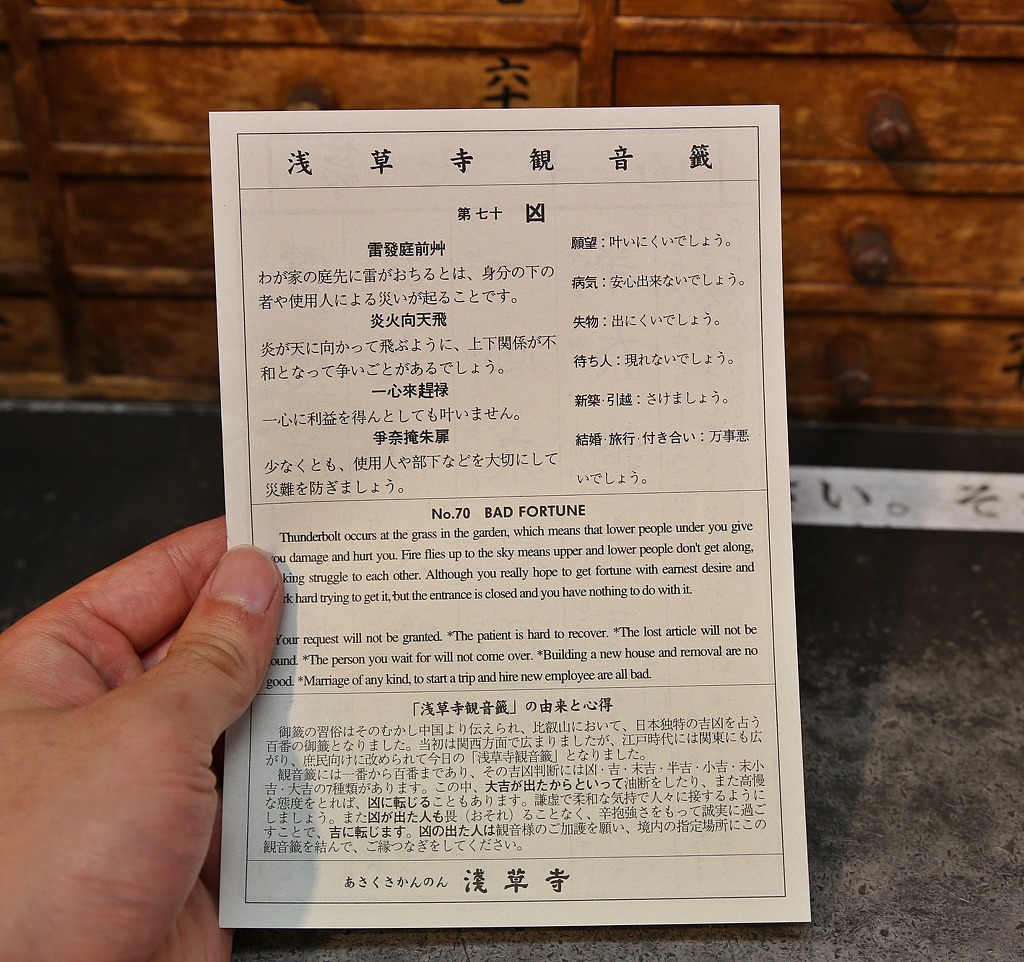 六十
浅草寺観音籤
第七十 凶
雷發庭前艸
わが家の庭先に雷がおちるとは、身分の下の
者や使用人による災いが起ることです。
炎火向天飛
炎が天に向かって飛ぶように、上下関係が不
和となって争いごとがあるでしょう。
一心來趕禄
一心に利益を得んとしても叶いません。
爭奈掩朱扉
少なくとも、使用人や部下などを大切にして
災難を防ぎましょう。
願望：叶いにくいでしょう。
病気：安心出来ないでしょう。
失物：出にくいでしょう。
待ち人：現れないでしょう。
新築・引越：さけましょう。
結婚・旅行・付き合い：万事悪
いでしょう。
No.70 BAD FORTUNE
Thunderbolt occurs at the grass in the garden, which means that lower people under you give
you damage and hurt you. Fire flies up to the sky means upper and lower people don't get along,
king struggle to each other. Although you really hope to get fortune with earnest desire and
rk hard trying to get it, but the entrance is closed and you have nothing to do with it.
Your request will not be granted. *The patient is hard to recover. *The lost article will not be
ound. *The person you wait for will not come over. *Building a new house and removal are no
good. *Marriage of any kind, to start a trip and hire new employee are all bad.
「浅草寺観音籤」の由来と心得
御籤の習俗はそのむかし中国より伝えられ、比叡山において、日本独特の吉凶を占う
百番の御籤となりました。当初は関西方面で広まりましたが、江戸時代には関東にも広
がり、庶民向けに改められて今日の「浅草寺観音籤」となりました。
観音籤には一番から百番まであり、その吉凶判断には凶・吉・末吉・半吉・小吉・末小
吉・大吉の7種類があります。この中、大吉が出たからといって油断をしたり、また高慢
な態度をとれば、凶に転じることもあります。謙虚で柔和な気持で人々に接するように
しましょう。また凶が出た人も畏（おそれ）ることなく、辛抱強さをもって誠実に過ご
すことで、吉に転じます。凶の出た人は観音様のご加護を願い、境内の指定場所にこの
観音籤を結んで、ご縁つなぎをしてください。
あさくさかんのん 淺草寺
い。そ